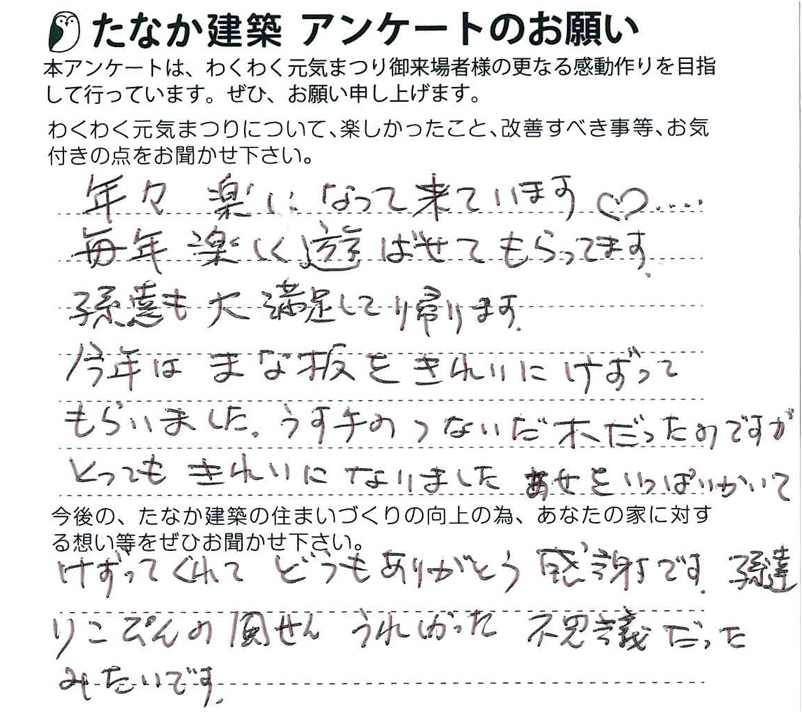 たなか建築 アンケートのお願い
本アンケートは、わくわく元気まつり御来場者様の更なる感動作りを目指
して行っています。ぜひ、お願い申し上げます。
わくわく元気まつりについて、楽しかったこと、改善すべき事等、お気
付きの点をお聞かせ下さい。
年々 楽しになって来ています♡....
毎年楽しく遊ばせてもらってます。
孫達も大満足して帰ります。
今年はまな板をきれいにけずって
もらいました。うす手のつないだ木だったのですが
とってもきれいになりました あせをいっぱいかいて
今後の、たなか建築の住まいづくりの向上の為、あなたの家に対す
る想い等をぜひお聞かせ下さい。
けずってくれて どうもありがとう 感謝です。孫達
りこぷんの風せん うれしかった 不思議だった
みたいです。